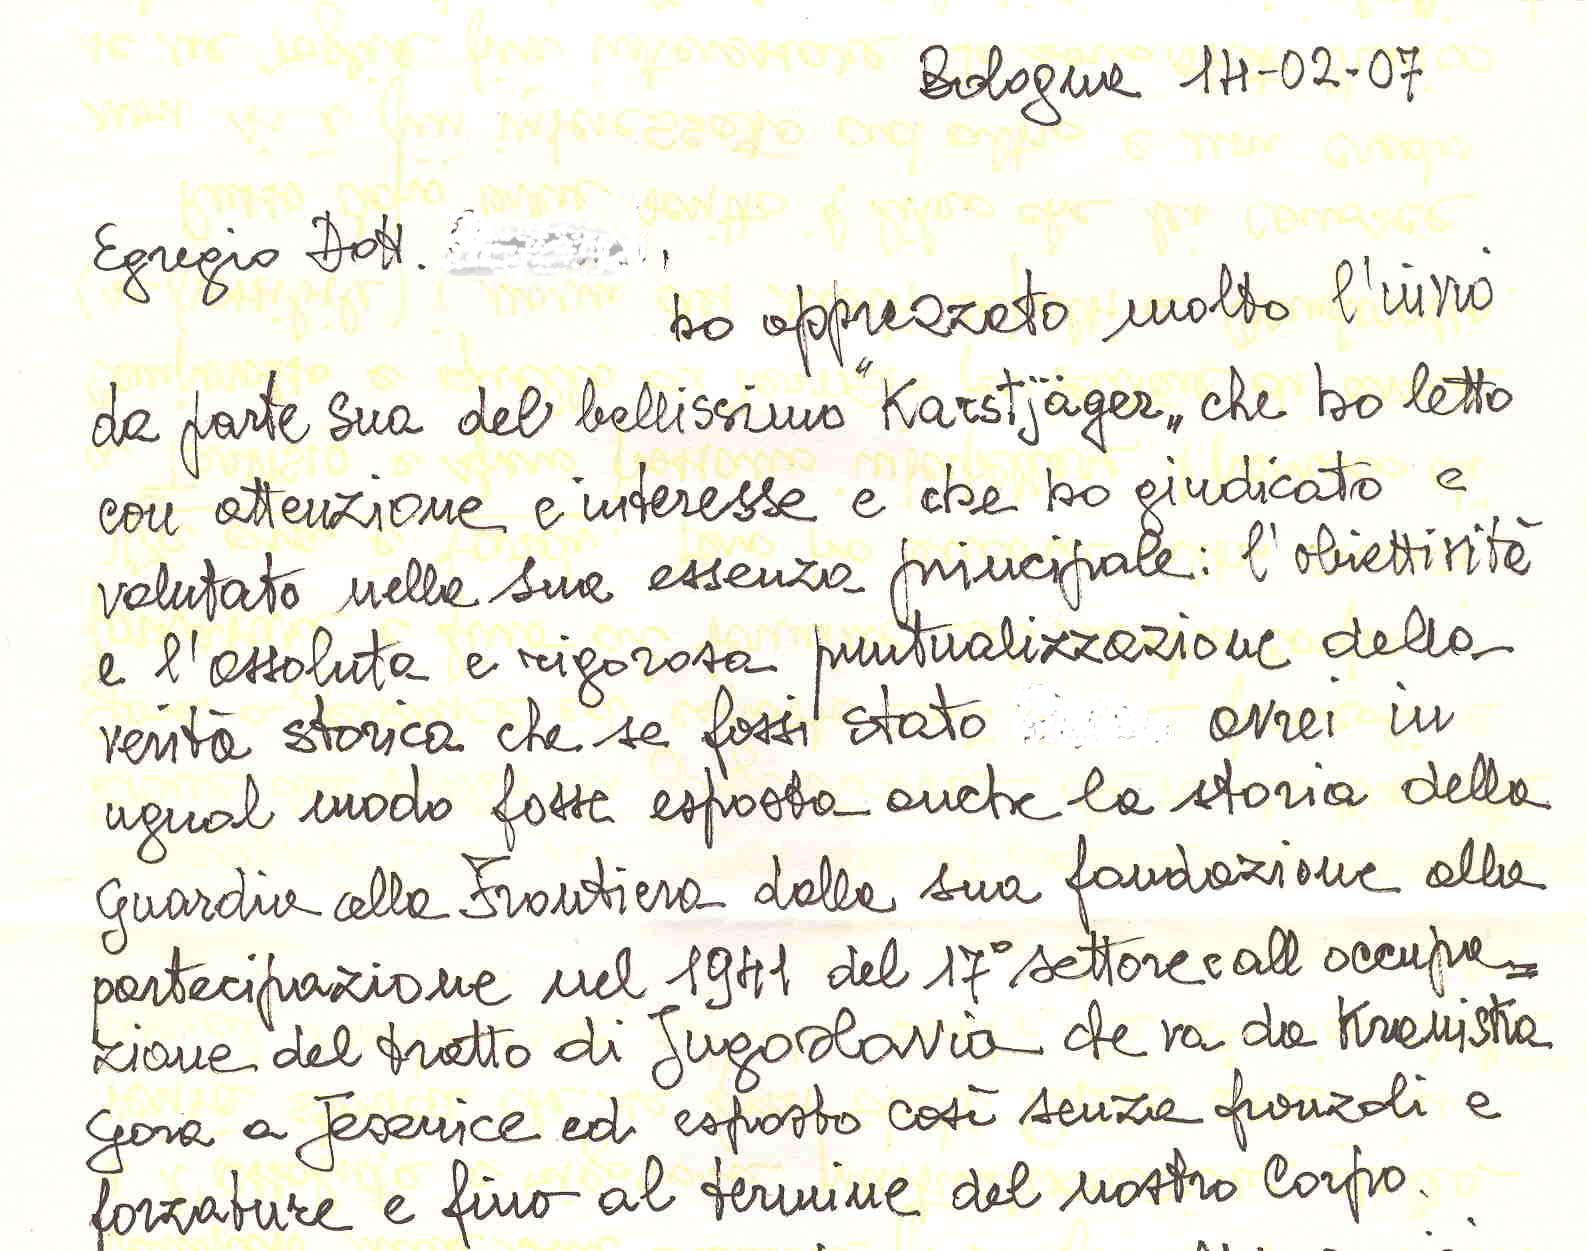 Bologna 14-02-07
Egregio Dott. ,
ho apprezzato molto l'invio
da parte sua del bellissimo "Karstjäger„ che ho letto
con attenzione e interesse e che ho giudicato e
valutato nella sua essenza principale: l'obiettività
e l'assoluta e rigorosa puntualizzazione della
verità storica che se fossi stato avrei in
ugual modo fosse esposta anche la storia della
Guardia alla Frontiera dalla sua fondazione alla
partecipazione nel 1941 del 17° settore all occupa=
zione del tratto di Jugoslavia che va da Kranistra
Gora a Jesenice ed esposto così senza fronzoli e
forzature e fino al termine del nostro Corpo.